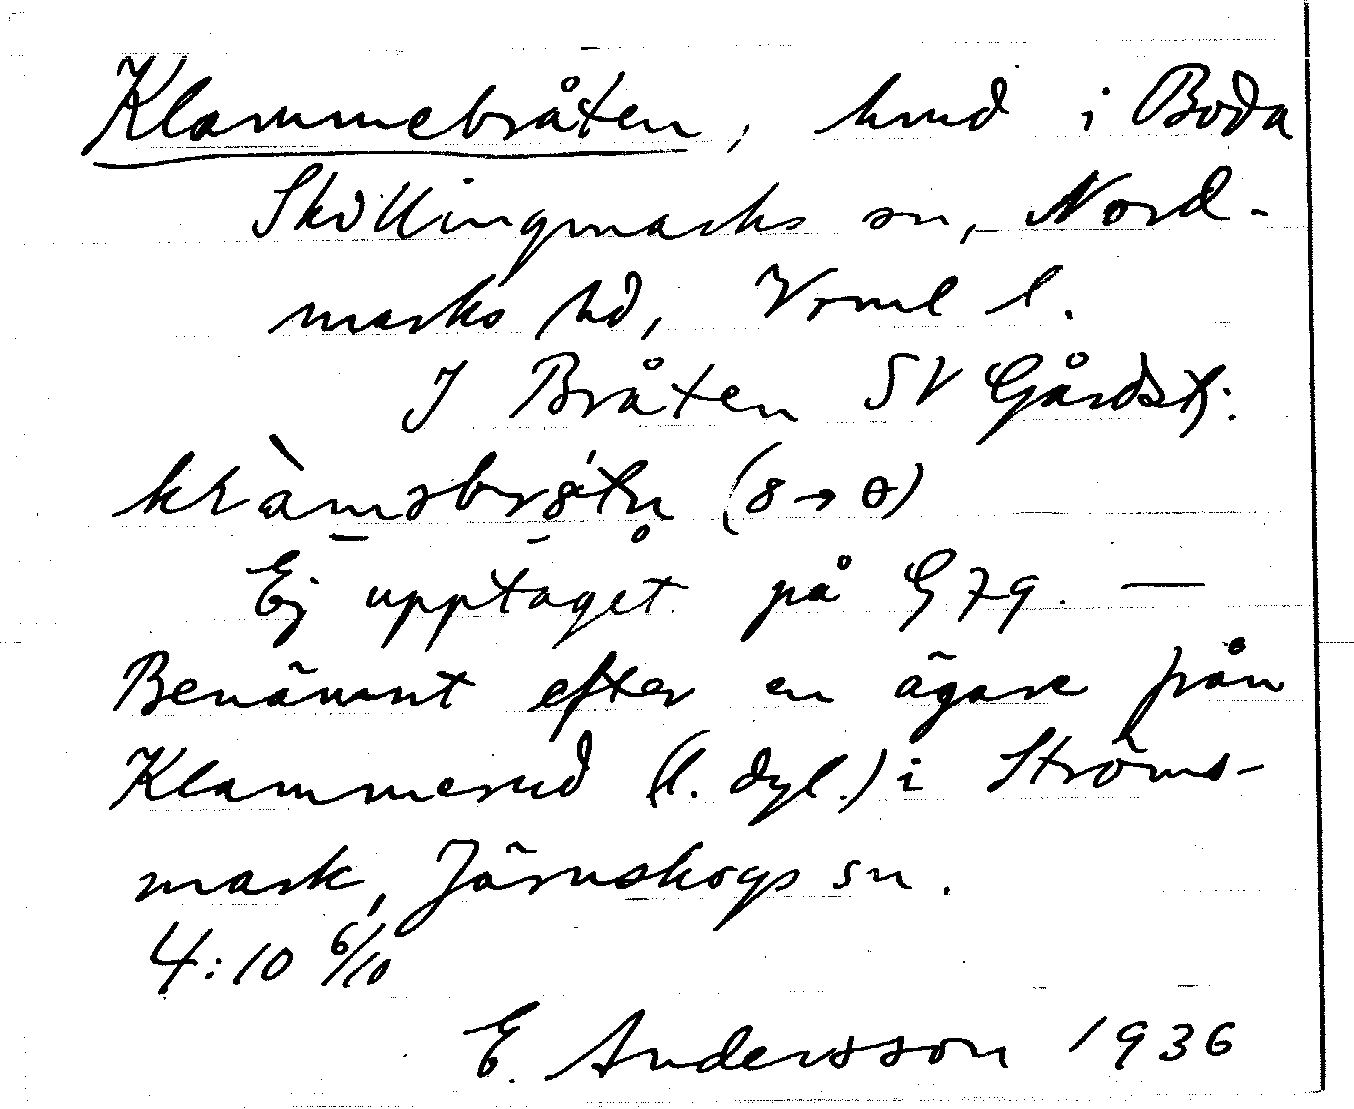 Klammebråten, hmd i Boda
Skillingmarks sn, Nord-
marks hd, Vrml l.
I Bråten SV Gårdsj:
Ej upptaget på G79. —
Benämnt efter en ägare från
Klammerud (l. dyl.) i Ströms-
mark, Järnskogs sn.
4:10 6/10
E. Andersson 1936